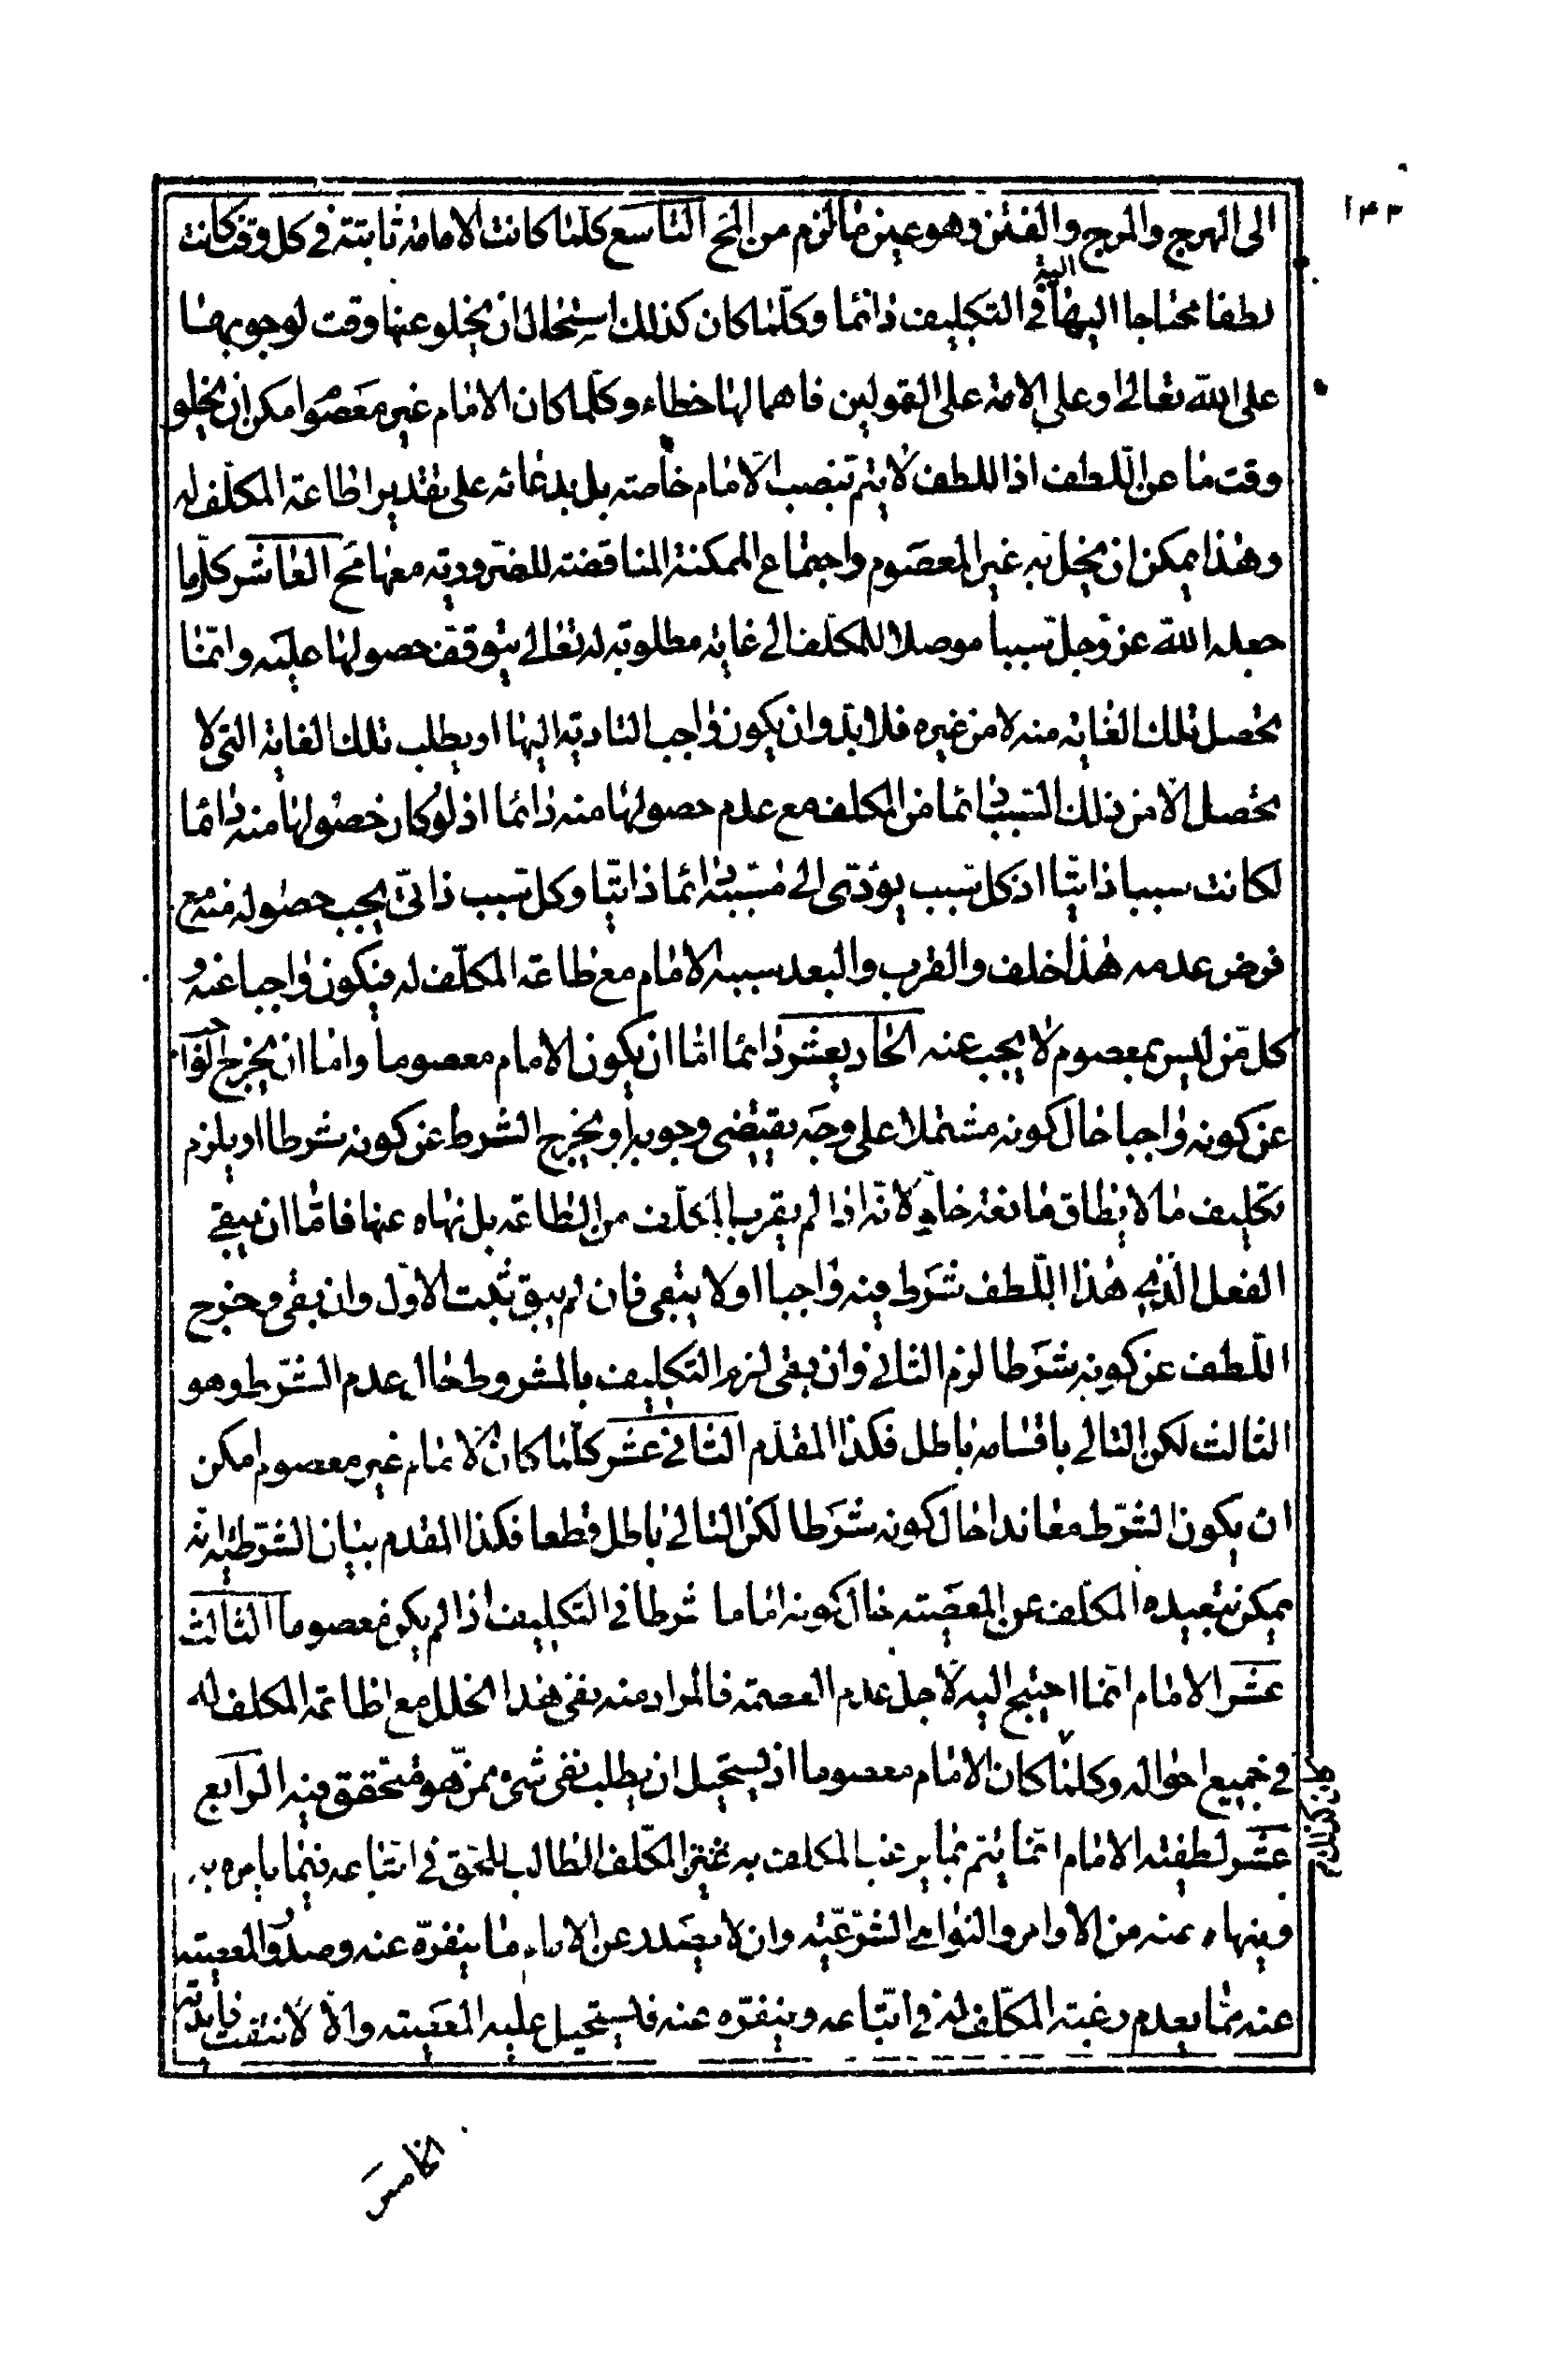 ١٤٣
الى الهرج والمرج والفتن وهو عين ما لزم من المح التاسع كلما كانت الامامة ثابتة في كل وقت كانت
لطفا محتاجا اليها في التكليف دائما وكلما كان كذلك استحال ان يخلو عنها وقت لوجوبها
على الله تعالى او على الامة على القولين فاهمالها خطاء وكلما كان الامام غير معصوم امكن ان يخلو
وقت ما عن اللطف اذ اللطف لا يتم بنصب الامام خاصة بل بدعائه على تقدير اطاعة المكلف له
وهذا يمكن ان يخل به غير المعصوم واجتماع الممكنة المناقضة للضرورية معها مح العاشر كلما
جعله الله عز وجل سببا موصلا للمكلف الى غاية مطلوبة له تعالى يتوقف حصولها عليه وانما
تحصل تلك الغاية منه لا من غيره فلا بد وان يكون واجب التادية اليها او يطلب تلك الغاية التي لا
تحصل الا من ذلك السبب دائما من المكلف مع عدم حصولها منه دائما اذ لو كان حصولها منه دائما
لكانت سببا ذاتيا اذ كل سبب يؤدى الى مسببه دائما ذاتيا وكل سبب ذاتى يجب حصوله منه مع
فرض عدمه هذا خلف والقرب والبعد سببه الامام مع طاعة المكلف له فيكون واجبا عنه و
كل من ليس بمعصوم لا يجب عنه الحاديعشر دائما اما ان يكون الامام معصوما واما ان يخرج الواجب
عن كونه واجبا حال كونه مشتملا على وجه يقتضى وجوبه او يخرج الشرط عن كونه شرطا او يلزم
تكليف ما لا يطاق مانعة خلو لانه اذا لم يقرب المكلف من الطاعة بل نهاه عنها فاما ان يبقى
الفعل الذي هذا اللطف شرط فيه واجبا او لا يبقى فان لم يبق ثبت الاول وان بقى وخرج
اللطف عن كونه شرطا لزم الثانى وان بقى لزم التكليف بالمشروط حال عدم الشرط وهو
الثالث لكن التالي باقسامه باطل فكذا المقدم الثاني عشر كلما كان الامام غير معصوم امكن
ان يكون الشرط معاندا حال كونه شرطا لكن التالي باطل قطعا فكذا المقدم بيان الشرطية انه
يمكن تبعيده المكلف عن المعصية حال كونه اماما شرطا في التكليف اذ لم يكن معصوما الثالث
عشر الامام انما احتيج اليه لاجل عدم العصمة فالمراد منه نفى هذا الخلل مع اطاعة المكلف له
في جميع احواله وكلما كان الامام معصوما اذ يستحيل ان يطلب نفى شئ ممن هو متحقق فيه الرابع
عشر لطفية الامام انما يتم بما يرغب المكلف به المكلف الطالب للحق في اتباعه فيما يامره به
وينهاه عنه من الاوامر والنواهي الشرعية وان لا يصدر عن الامام ما ينفره عنه وصدور المعصية
عنه مما يعدم رغبة المكلف له في اتباعه وينفره عنه فيستحيل عليه المعصية والا لانتفت فايدته
الخامس